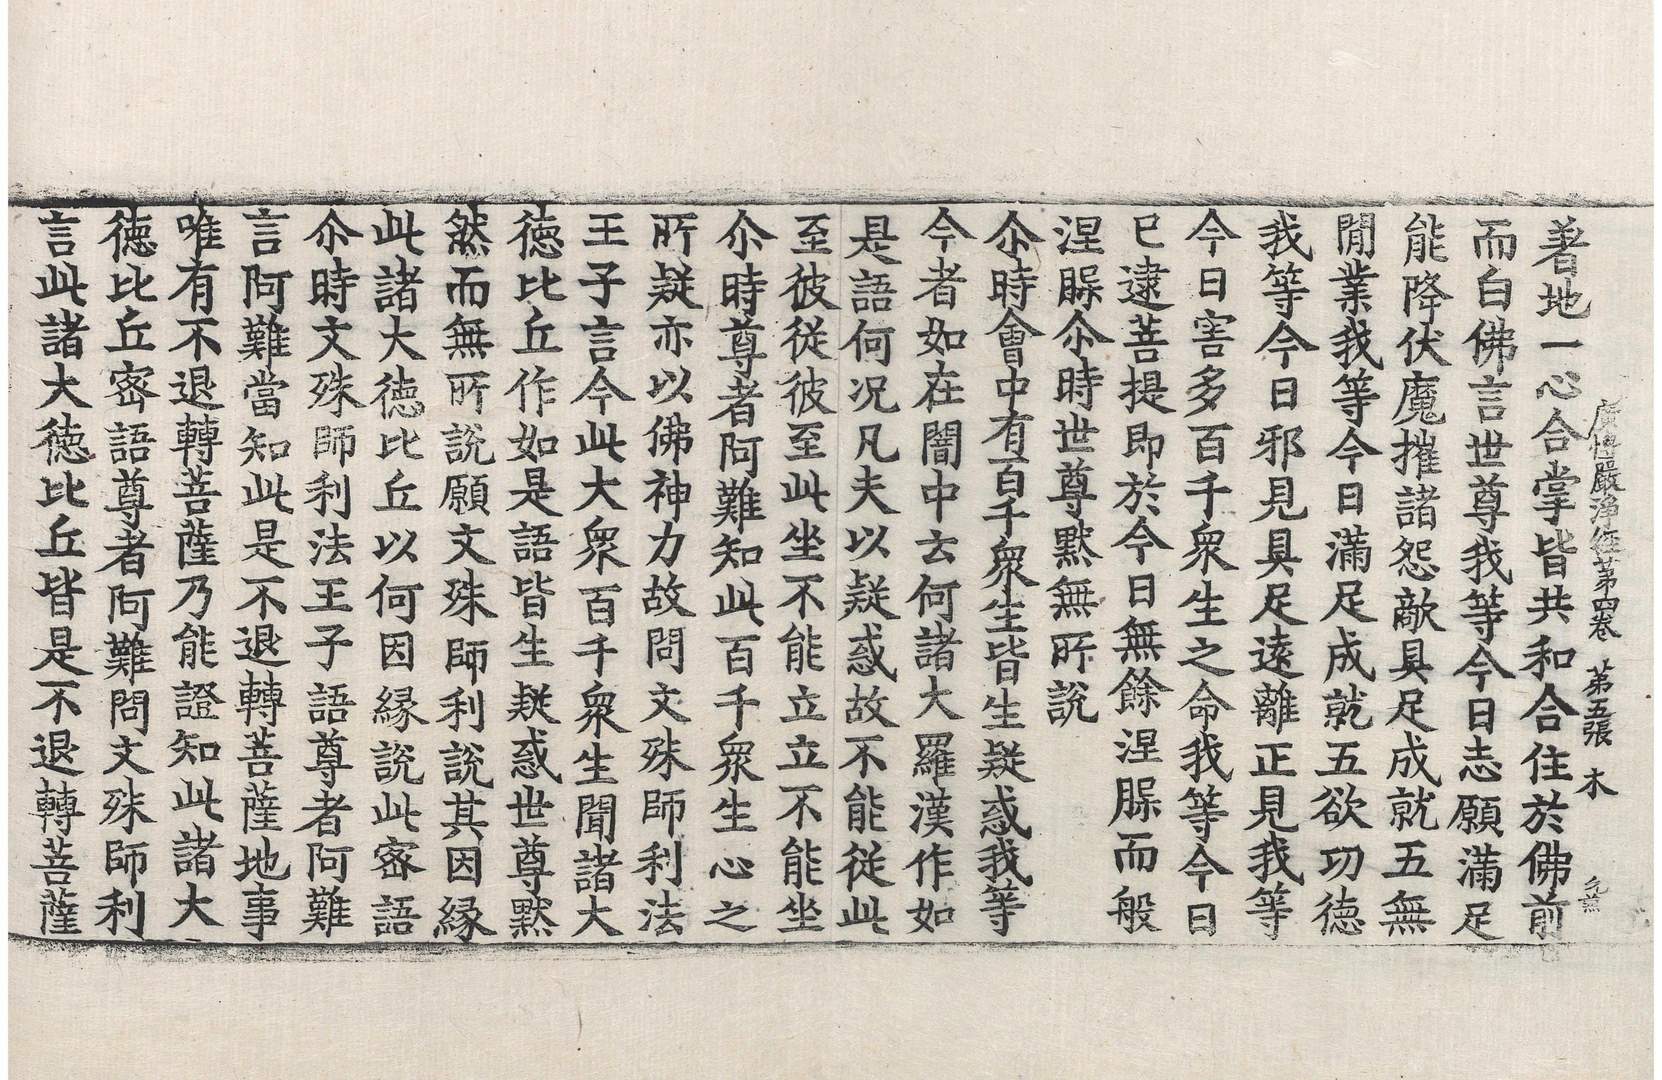 廣博嚴淨經第四卷 第五張 木
著地一心合掌皆共和合住於佛前
而白佛言世尊我等今日志願滿足
能降伏魔摧諸怨敵具足成就五無
閒業我等今日滿足成就五欲功徳
我等今日邪見具足遠離正見我等
今日害多百千衆生之命我等今日
已逮菩提即於今日無餘涅槃而般
涅槃尒時世尊默無所說
尒時會中有百千衆生皆生疑惑我等
今者如在闇中云何諸大羅漢作如
是語何况凡夫以疑惑故不能従此
至彼従彼至此坐不能立立不能坐
尒時尊者阿難知此百千衆生心之
所疑亦以佛神力故問文殊師利法
王子言今此大衆百千衆生聞諸大
徳比丘作如是語皆生疑惑世尊默
然而無所說願文殊師利說其因緣
此諸大徳比丘以何因緣說此密語
尒時文殊師利法王子語尊者阿難
言阿難當知此是不退轉菩薩地事
唯有不退轉菩薩乃能證知此諸大
徳比丘密語尊者阿難問文殊師利
言此諸大徳比丘皆是不退轉菩薩